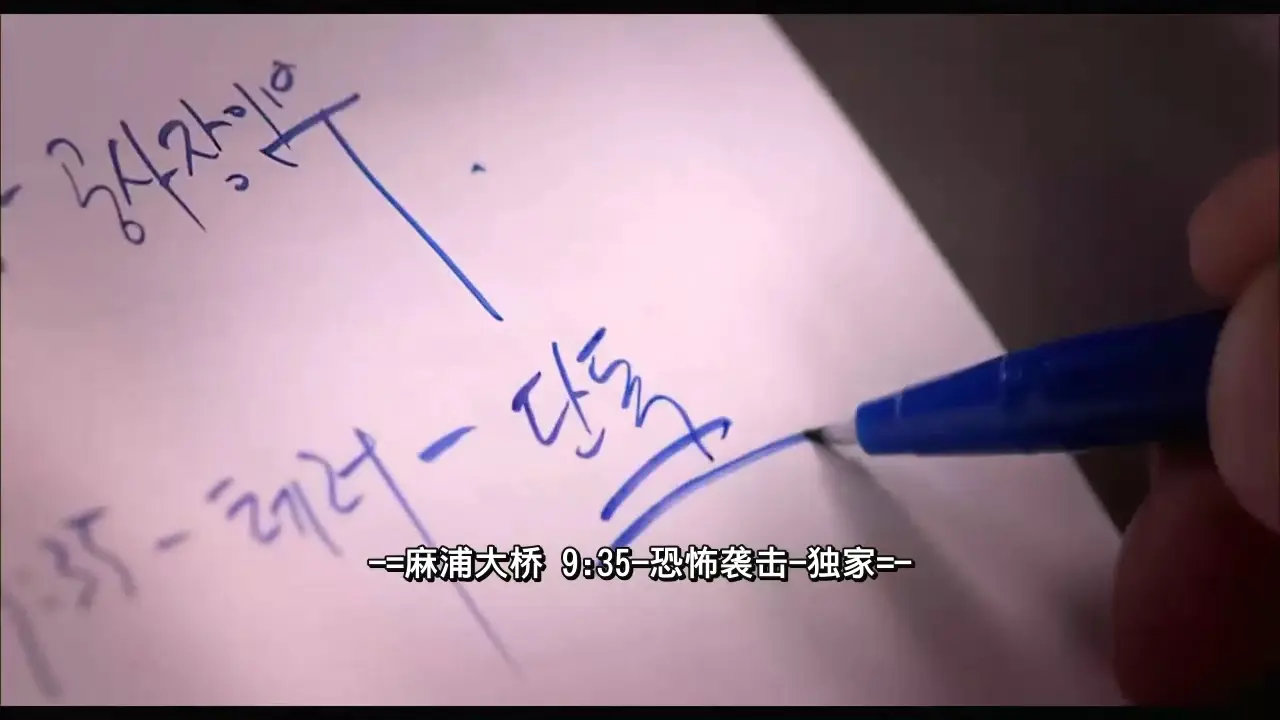 - 공사장인부
9:35 - 테러 - 단독
-=麻浦大桥 9:35-恐怖袭击-独家=-